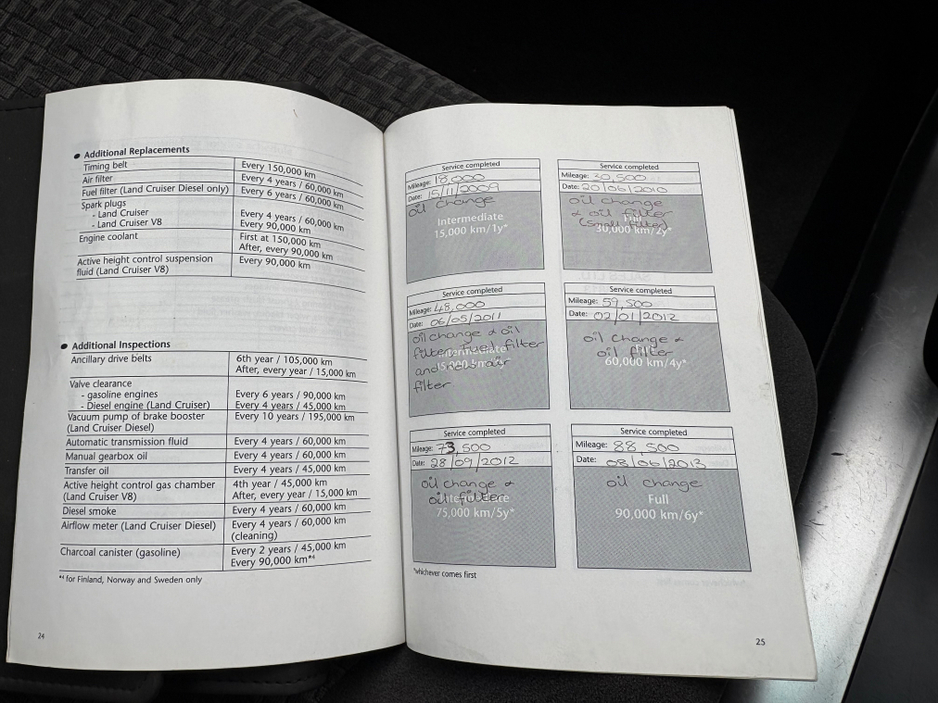 ● Additional Replacements
Timing belt Every 150,000 km
Air filter Every 4 years / 60,000 km
Fuel filter (Land Cruiser Diesel only) Every 6 years / 60,000 km
Spark plugs
- Land Cruiser Every 4 years / 60,000 km
- Land Cruiser V8 Every 90,000 km
Engine coolant First at 150,000 km
After, every 90,000 km
Active height control suspension Every 90,000 km
fluid (Land Cruiser V8)
● Additional Inspections
Ancillary drive belts 6th year / 105,000 km
After, every year / 15,000 km
Valve clearance
- gasoline engines Every 6 years / 90,000 km
- Diesel engine (Land Cruiser) Every 4 years / 45,000 km
Vacuum pump of brake booster Every 10 years / 195,000 km
(Land Cruiser Diesel)
Automatic transmission fluid Every 4 years / 60,000 km
Manual gearbox oil Every 4 years / 60,000 km
Transfer oil Every 4 years / 45,000 km
Active height control gas chamber 4th year / 45,000 km
(Land Cruiser V8) After, every year / 15,000 km
Diesel smoke Every 4 years / 60,000 km
Airflow meter (Land Cruiser Diesel) Every 4 years / 60,000 km
(cleaning)
Charcoal canister (gasoline) Every 2 years / 45,000 km
Every 90,000 km*⁴
*⁴ for Finland, Norway and Sweden only
24
Service completed
Mileage: 18,000
Date: 15/11/2009
oil change
Intermediate
15,000 km/1y*
Service completed
Mileage: 30,500
Date: 20/06/2010
oil change
& oil filter
(small filter)
Full
30,000 km/2y*
Service completed
Mileage: 48,000
Date: 06/05/2011
oil change & oil
filter, fuel filter
and new air
filter
Intermediate
45,000 km/3y*
Service completed
Mileage: 59,500
Date: 02/01/2012
oil change &
oil filter
Full
60,000 km/4y*
Service completed
Mileage: 73,500
Date: 28/09/2012
oil change &
oil filter
Intermediate
75,000 km/5y*
Service completed
Mileage: 88,500
Date: 08/06/2013
oil change
Full
90,000 km/6y*
*whichever comes first
25